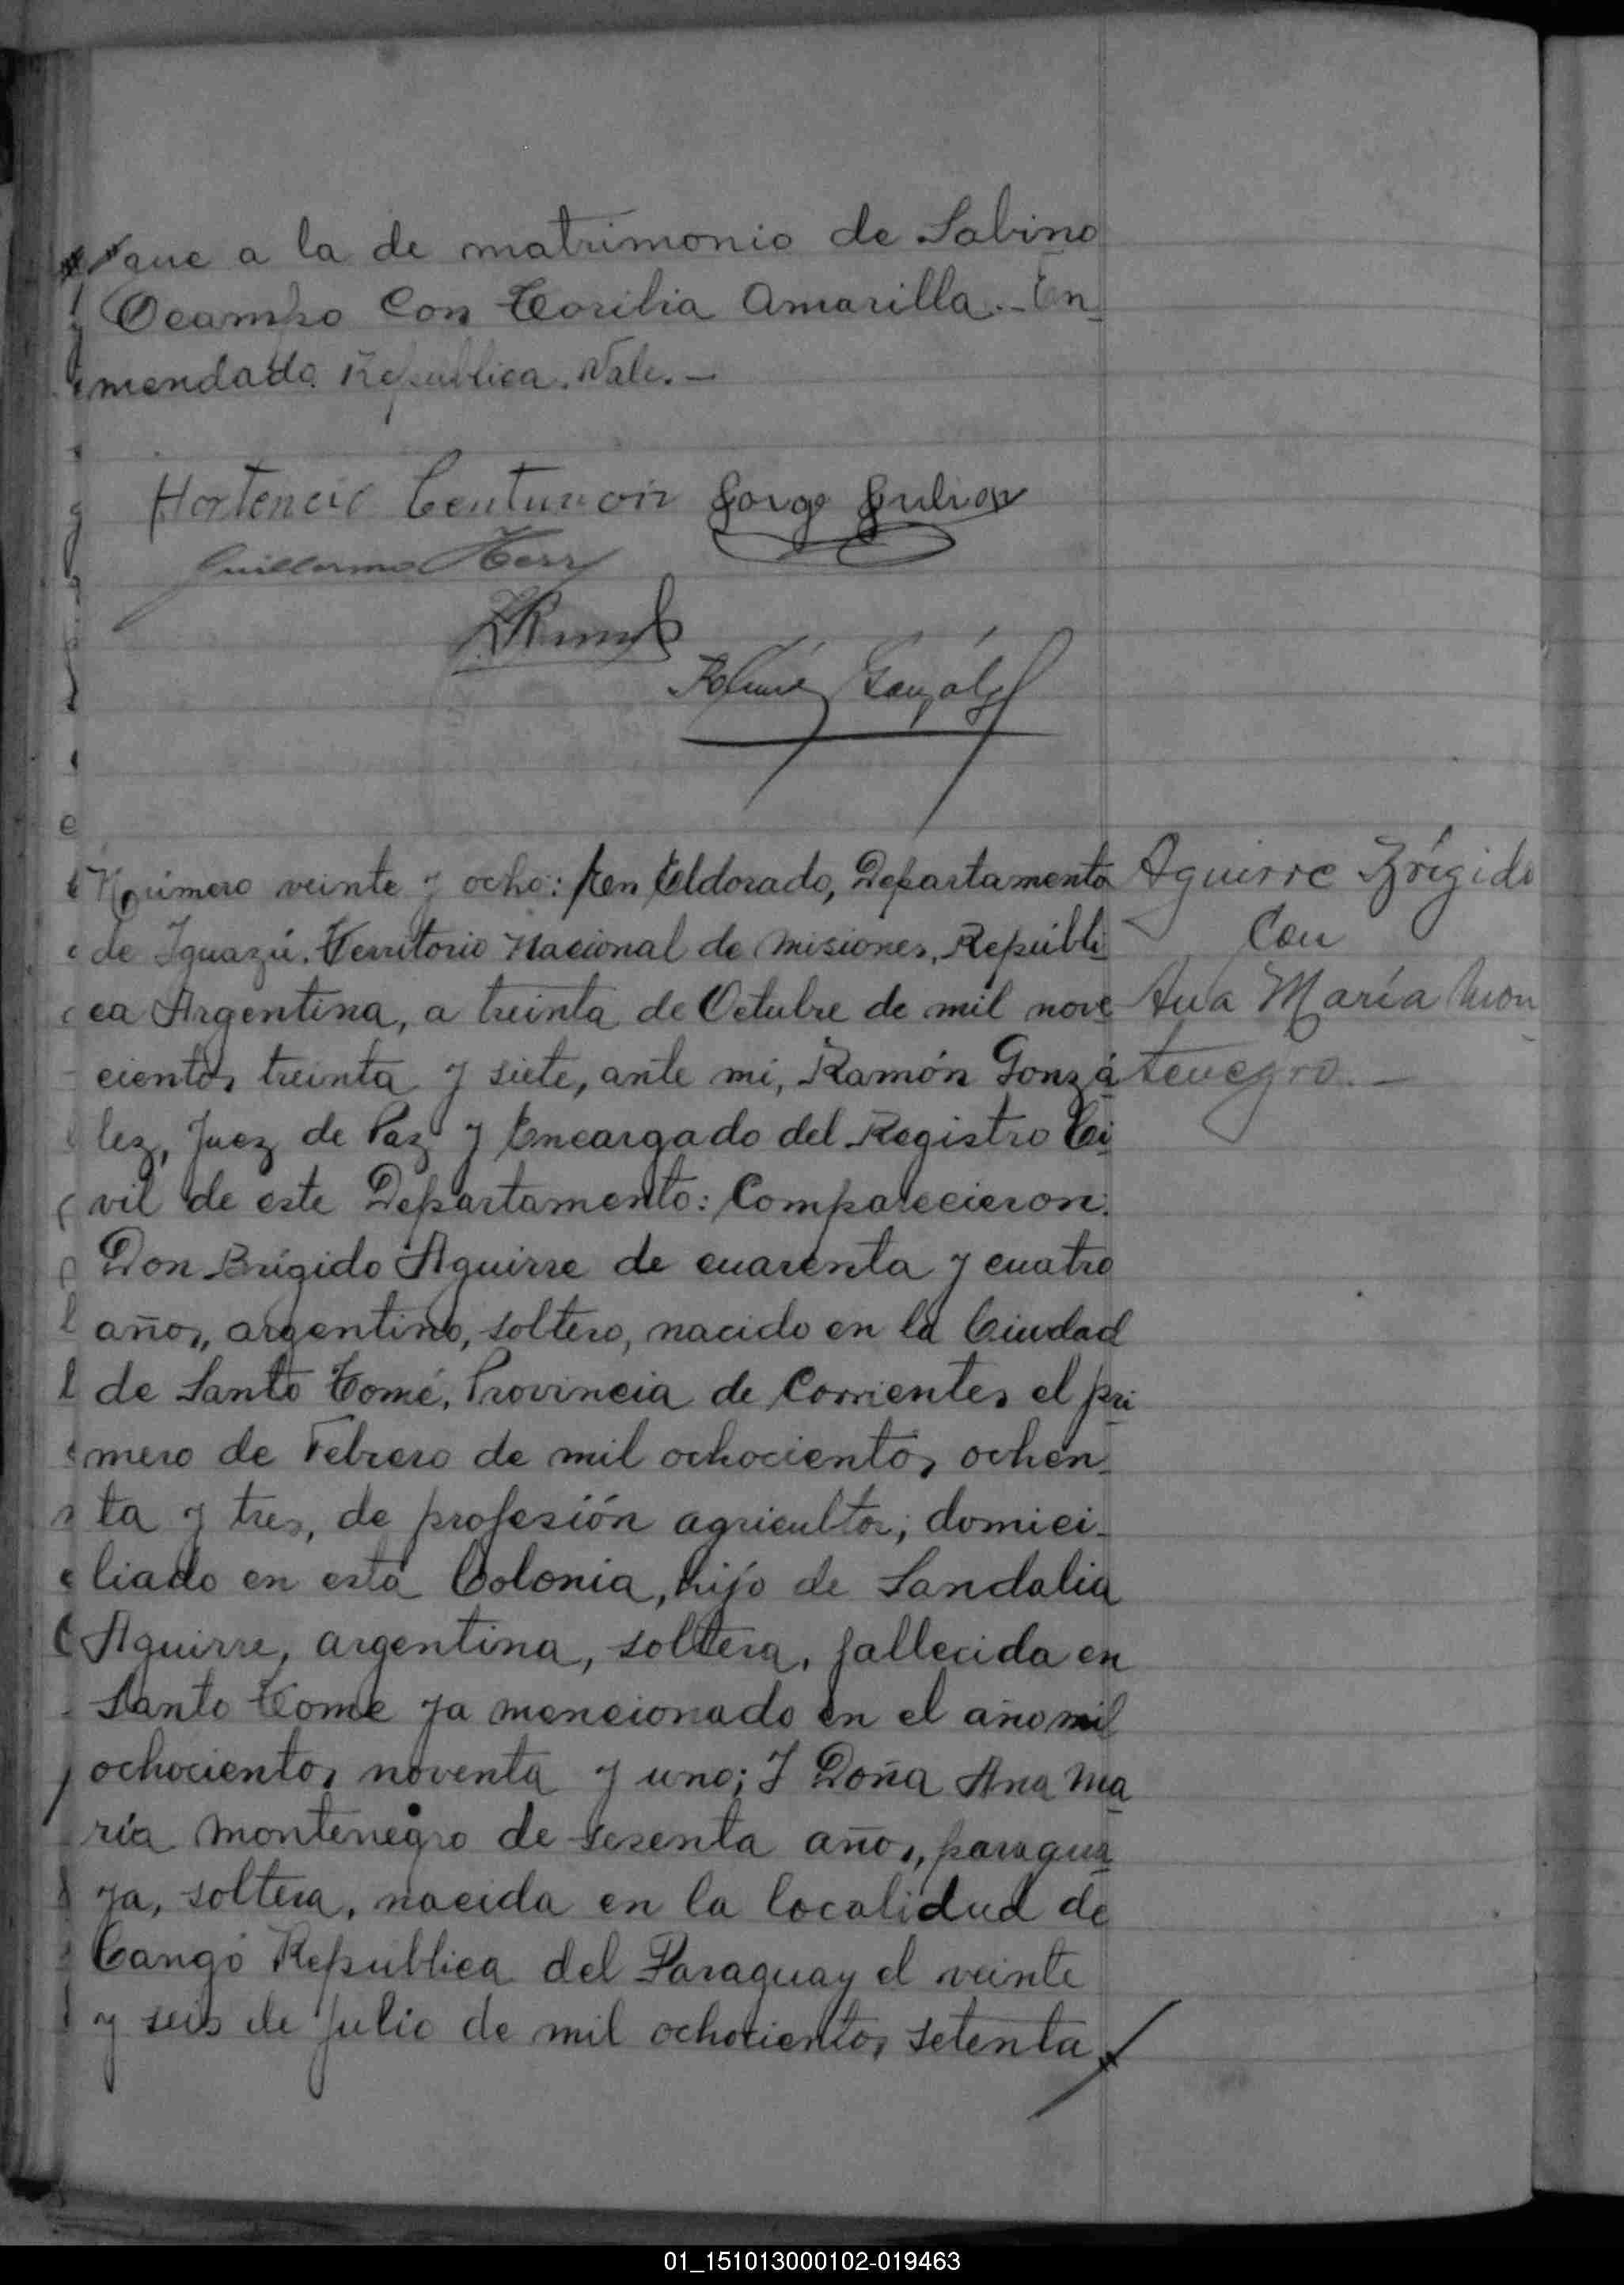 que a la de matrimonio de Sabino
Ocampo Con Corilia Amarilla.- En
mendado República. Vale.-
Hortencio Centurión Jorge Julian
Guillermo
Ramón González
Número veinte y ocho: En Eldorado, Departamento
de Iguazú, Territorio Nacional de Misiones, Repúbli
ca Argentina, a treinta de Octubre de mil nove
cientos treinta y siete, ante mi, Ramón Gonzá
lez, Juez de Paz y Encargado del Registro Ci
vil de este Departamento: Comparecieron:
Don Brígido Aguirre de cuarenta y cuatro
años, argentino, soltero, nacido en la Ciudad
de Santo Tomé, Provincia de Corrientes el pri
mero de Febrero de mil ochocientos ochen-
ta y tres, de profesión agricultor, domici-
liado en esta Colonia, hijo de Sandalia
Aguirre, argentina, soltera, fallecida en
Santo Tome ya mencionado en el año mil
ochocientos noventa y uno; Y Doña Ana Ma
ría Montenegro de sesenta años, paragua
ya, soltera, nacida en la localidad de
Cangó República del Paraguay el veinte
y seis de Julio de mil ochocientos setenta
Aguirre Brígido
Con
Ana María Mon
tenegro.-
01_151013000102-019463